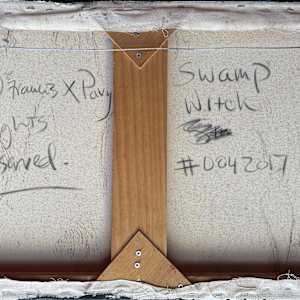 Francis X Pavy
hts
served.
Swamp
Witch
#0042017